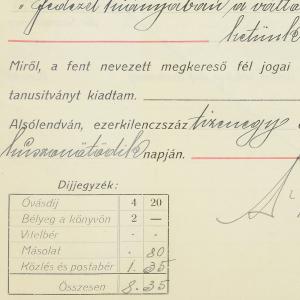 "fedezet hiányában a válto
hetünk
Miről, a fent nevezett megkereső fél jogai
tanusitványt kiadtam.
Alsólendván, ezerkilenczszáz tizenegy
huszonötödik napján.
Díjjegyzék:
Óvásdíj 4 20
Bélyeg a könyvön 2 —
Vitelbér - -
Másolat . 80
Közlés és postabér 1. 35
Összesen 8. 35